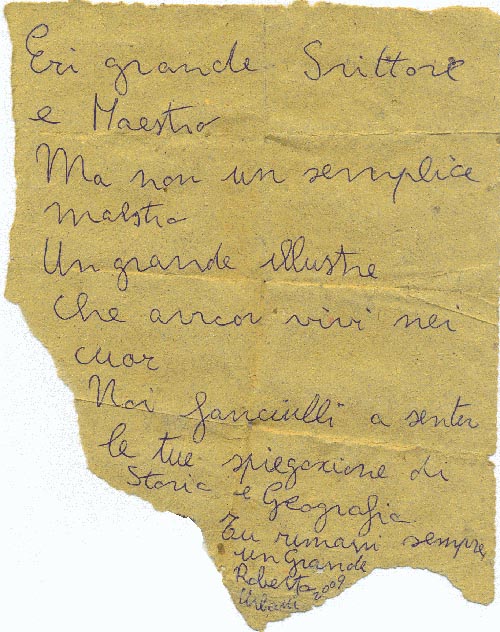 Eri grande Scrittore
e Maestro
Ma non un semplice
maestro
Un grande illustre
che ancor vivi nei
cuor
Noi fanciulli a sentir
le tue spiegazione di
Storia e Geografia
Tu rimani sempre
un Grande
Roberta 2009